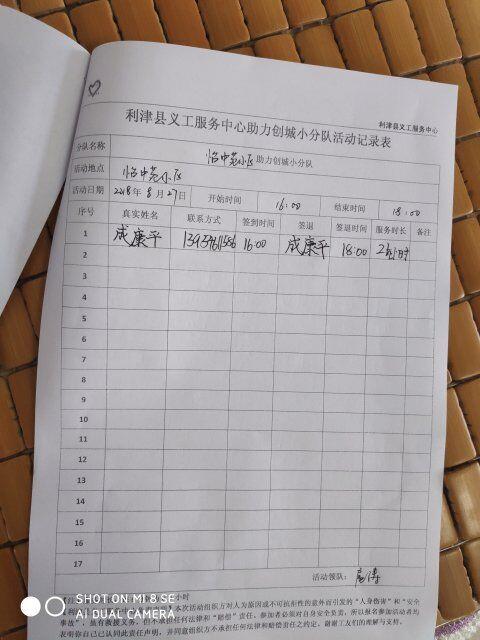 利津县义工服务中心
利津县义工服务中心助力创城小分队活动记录表
分队名称 怡中苑小区助力创城小分队
活动地点 怡中苑小区
活动日期 2018年8月27日 开始时间 16:00 结束时间 18:00
序号 真实姓名 联系方式 签到时间 签退 签退时间 服务时长 备注
1 成康平 16:00 成康平 18:00 2小时
2
3
4
5
6
7
8
9
10
11
12
13
14
15
16
17
活动领队:
小时
本次活动组织方对人为原因或不可抗拒性的意外而引发的“人身伤害”和“安全
事故”,虽有救援义务,但不承担任何法律和“赔偿”责任。参加者必须对自身安全负责,所以报名参加活动者均
表明你自己已认同此责任声明,并同意组织方不承担任何法律和赔偿责任之约定,谢谢义工们的理解与支持。
SHOT ON MI 8 SE
AI DUAL CAMERA